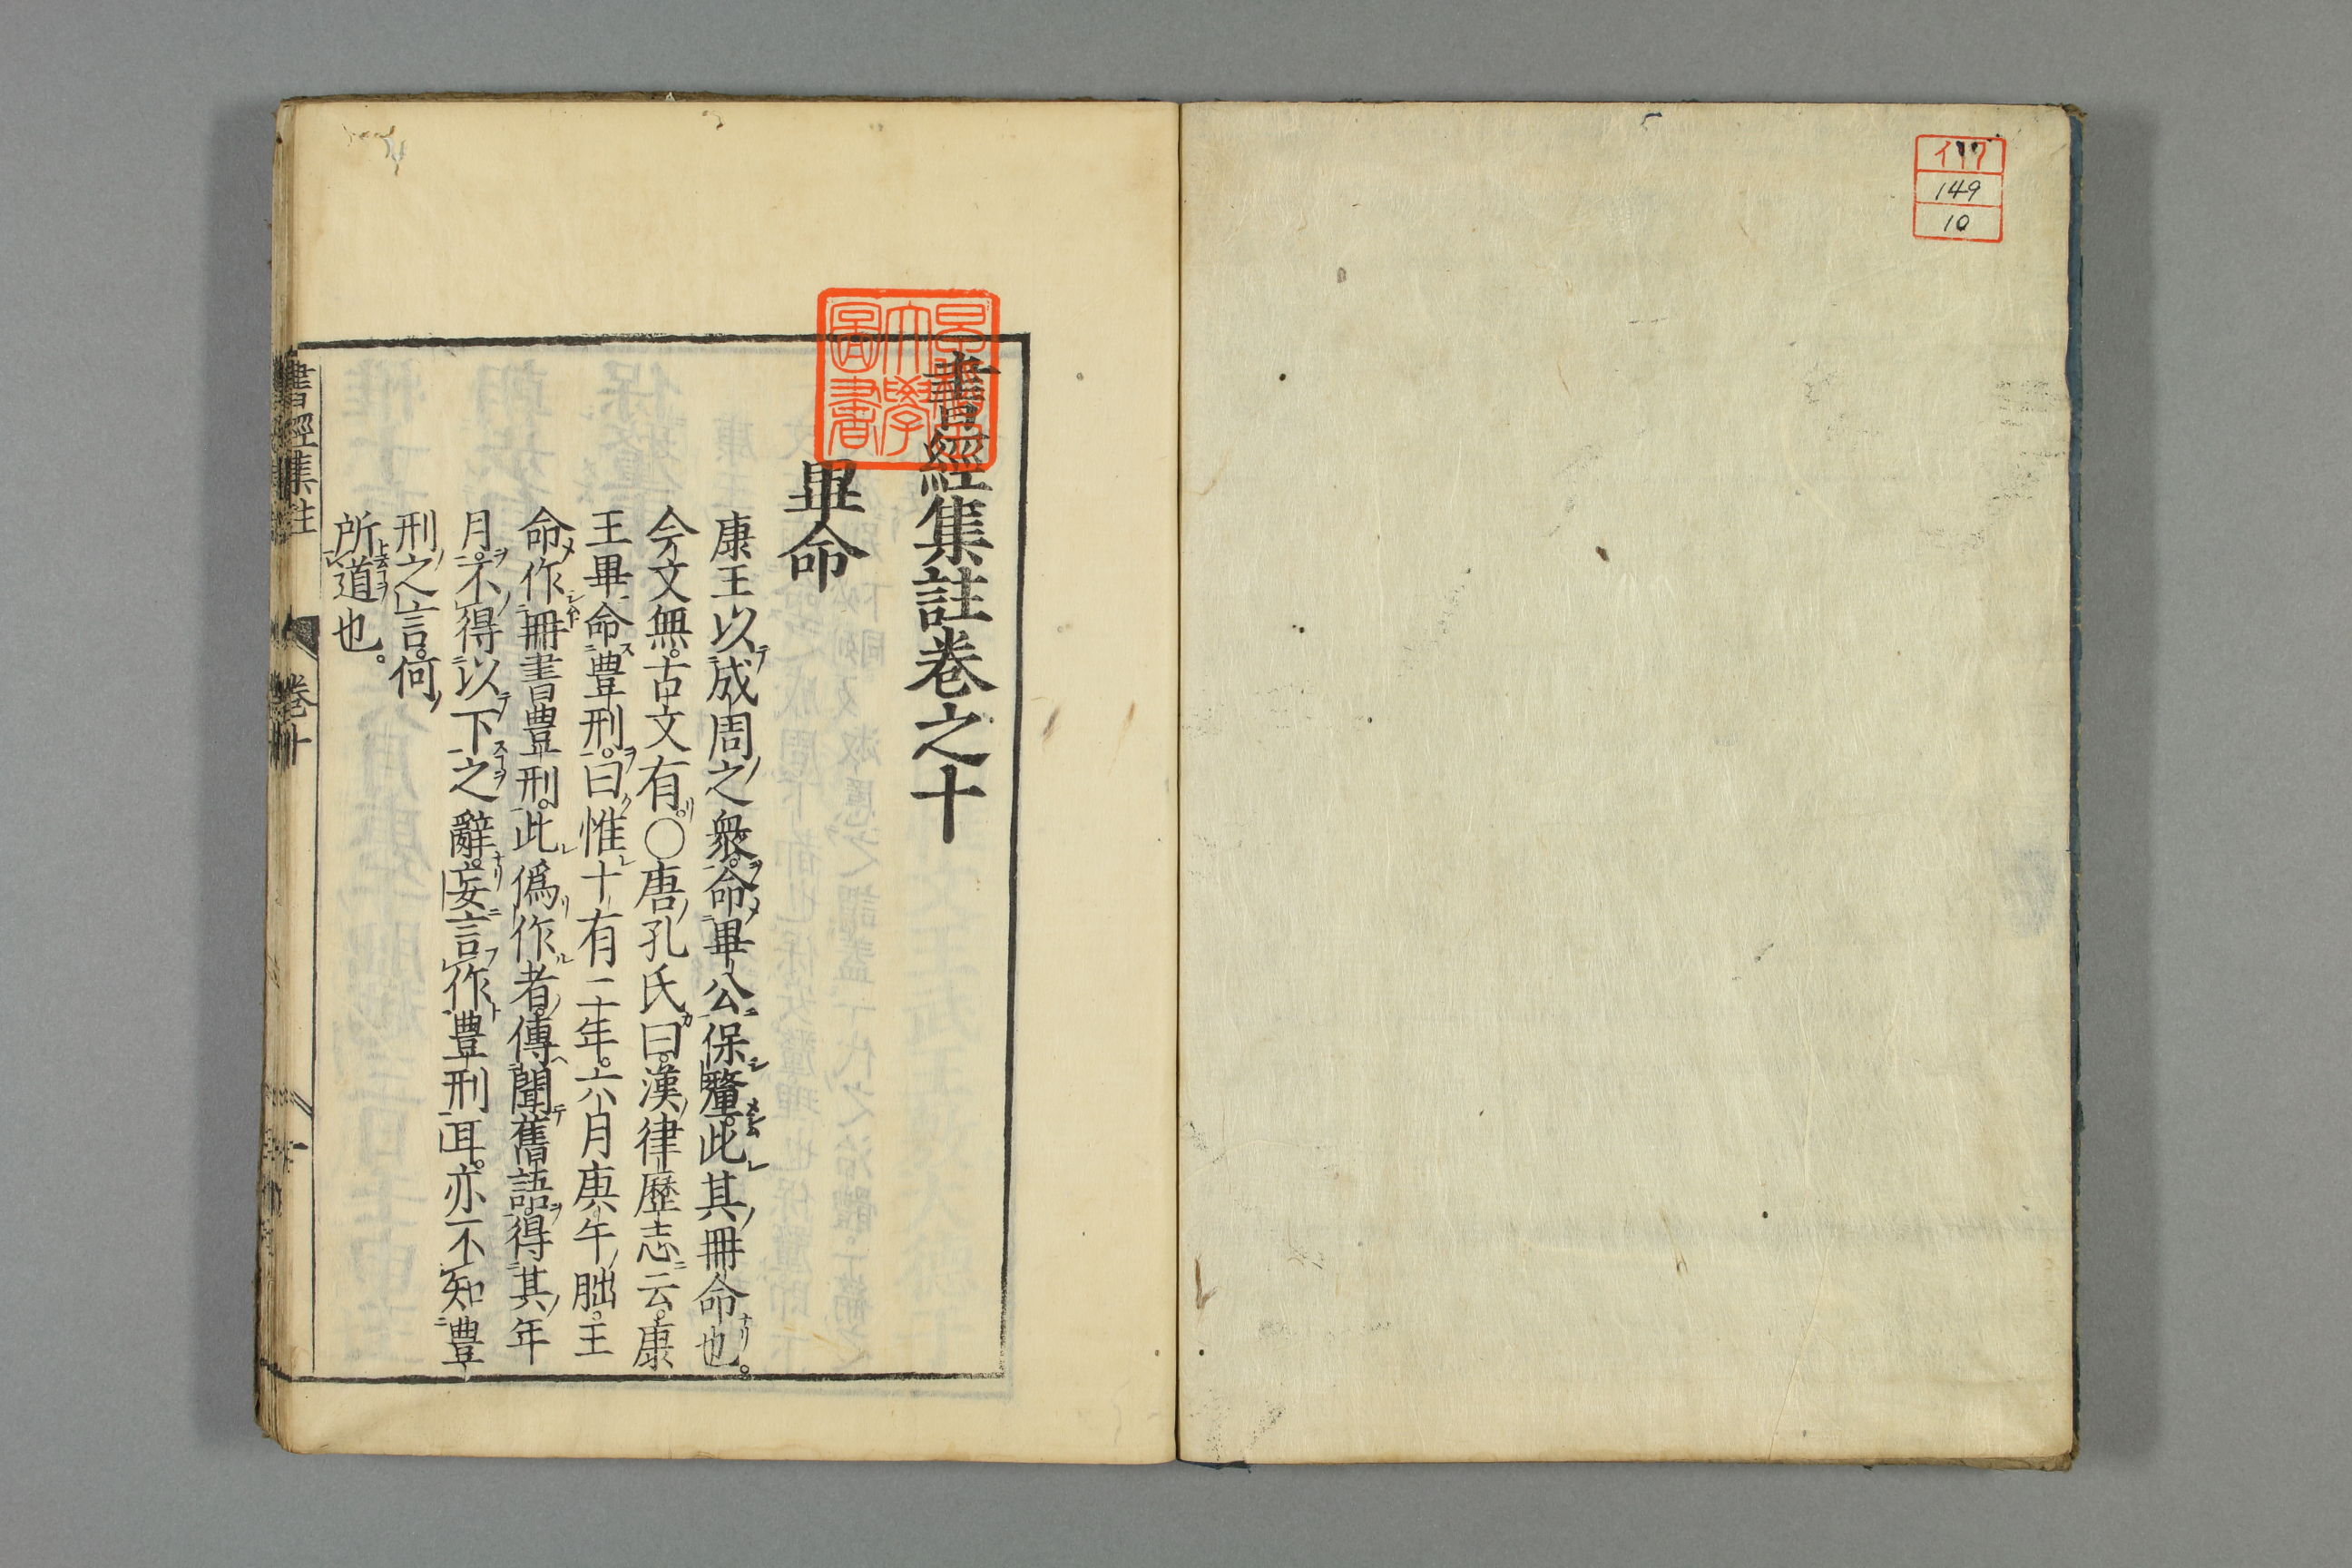 イ17
149
10
書經集註卷之十
畢命
康王以成周之衆。命畢公保釐。此其冊命也。
今文無。古文有。〇唐孔氏曰。漢律歷志云。康
王畢命豊刑。曰惟十有二年。六月庚午朏。王
命作冊書豊刑。此偽作者。傳聞舊語。得其年
月。不得以下之辭。妄言作豊刑耳。亦不知豊
刑之言。何
所道也。
書經集註 卷十 一